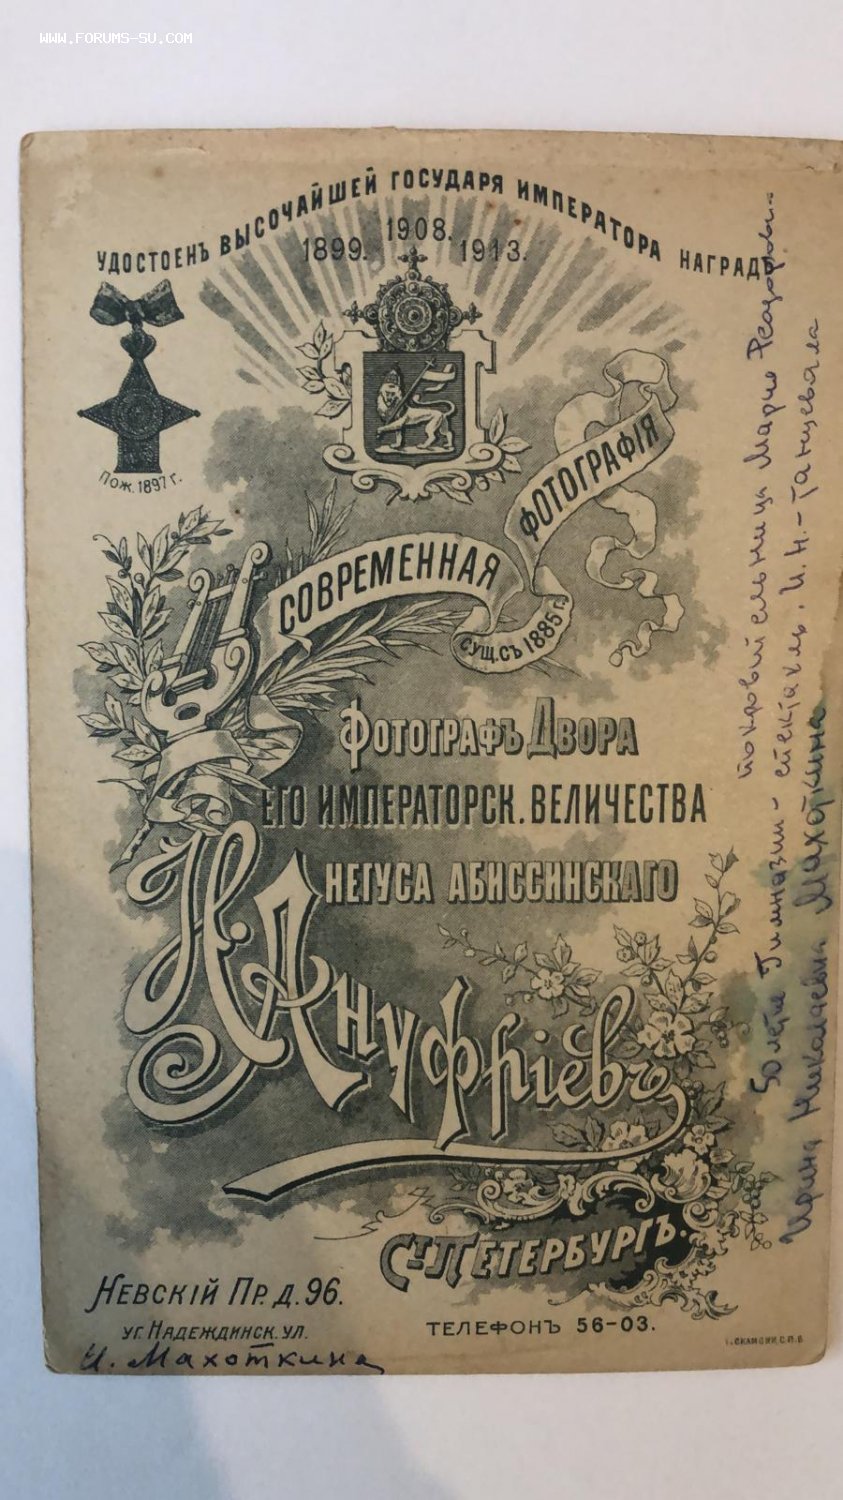 WWW.FORUMS-SU.COM
УДОСТОЕНЪ ВЫСОЧАЙШЕЙ ГОСУДАРЯ ИМПЕРАТОРА НАГРАДЫ
1899. 1908. 1913.
ПОЖ. 1897 г.
СОВРЕМЕННАЯ ФОТОГРАФІЯ
СУЩ. СЪ 1885 г.
ФОТОГРАФЪ ДВОРА
ЕГО ИМПЕРАТОРСК. ВЕЛИЧЕСТВА
НЕГУСА АБИССИНСКАГО
Н. Ануфріевъ
С-ТПЕТЕРБУРГЪ.
НЕВСКІЙ ПР. Д. 96.
УГ. НАДЕЖДИНСК. УЛ.
ТЕЛЕФОНЪ 56-03.
И. Махоткина
покровительница Мария
50 летие Гимназии - спектакль. И. Н. - танцевала
Ирина Николаевна Махоткина